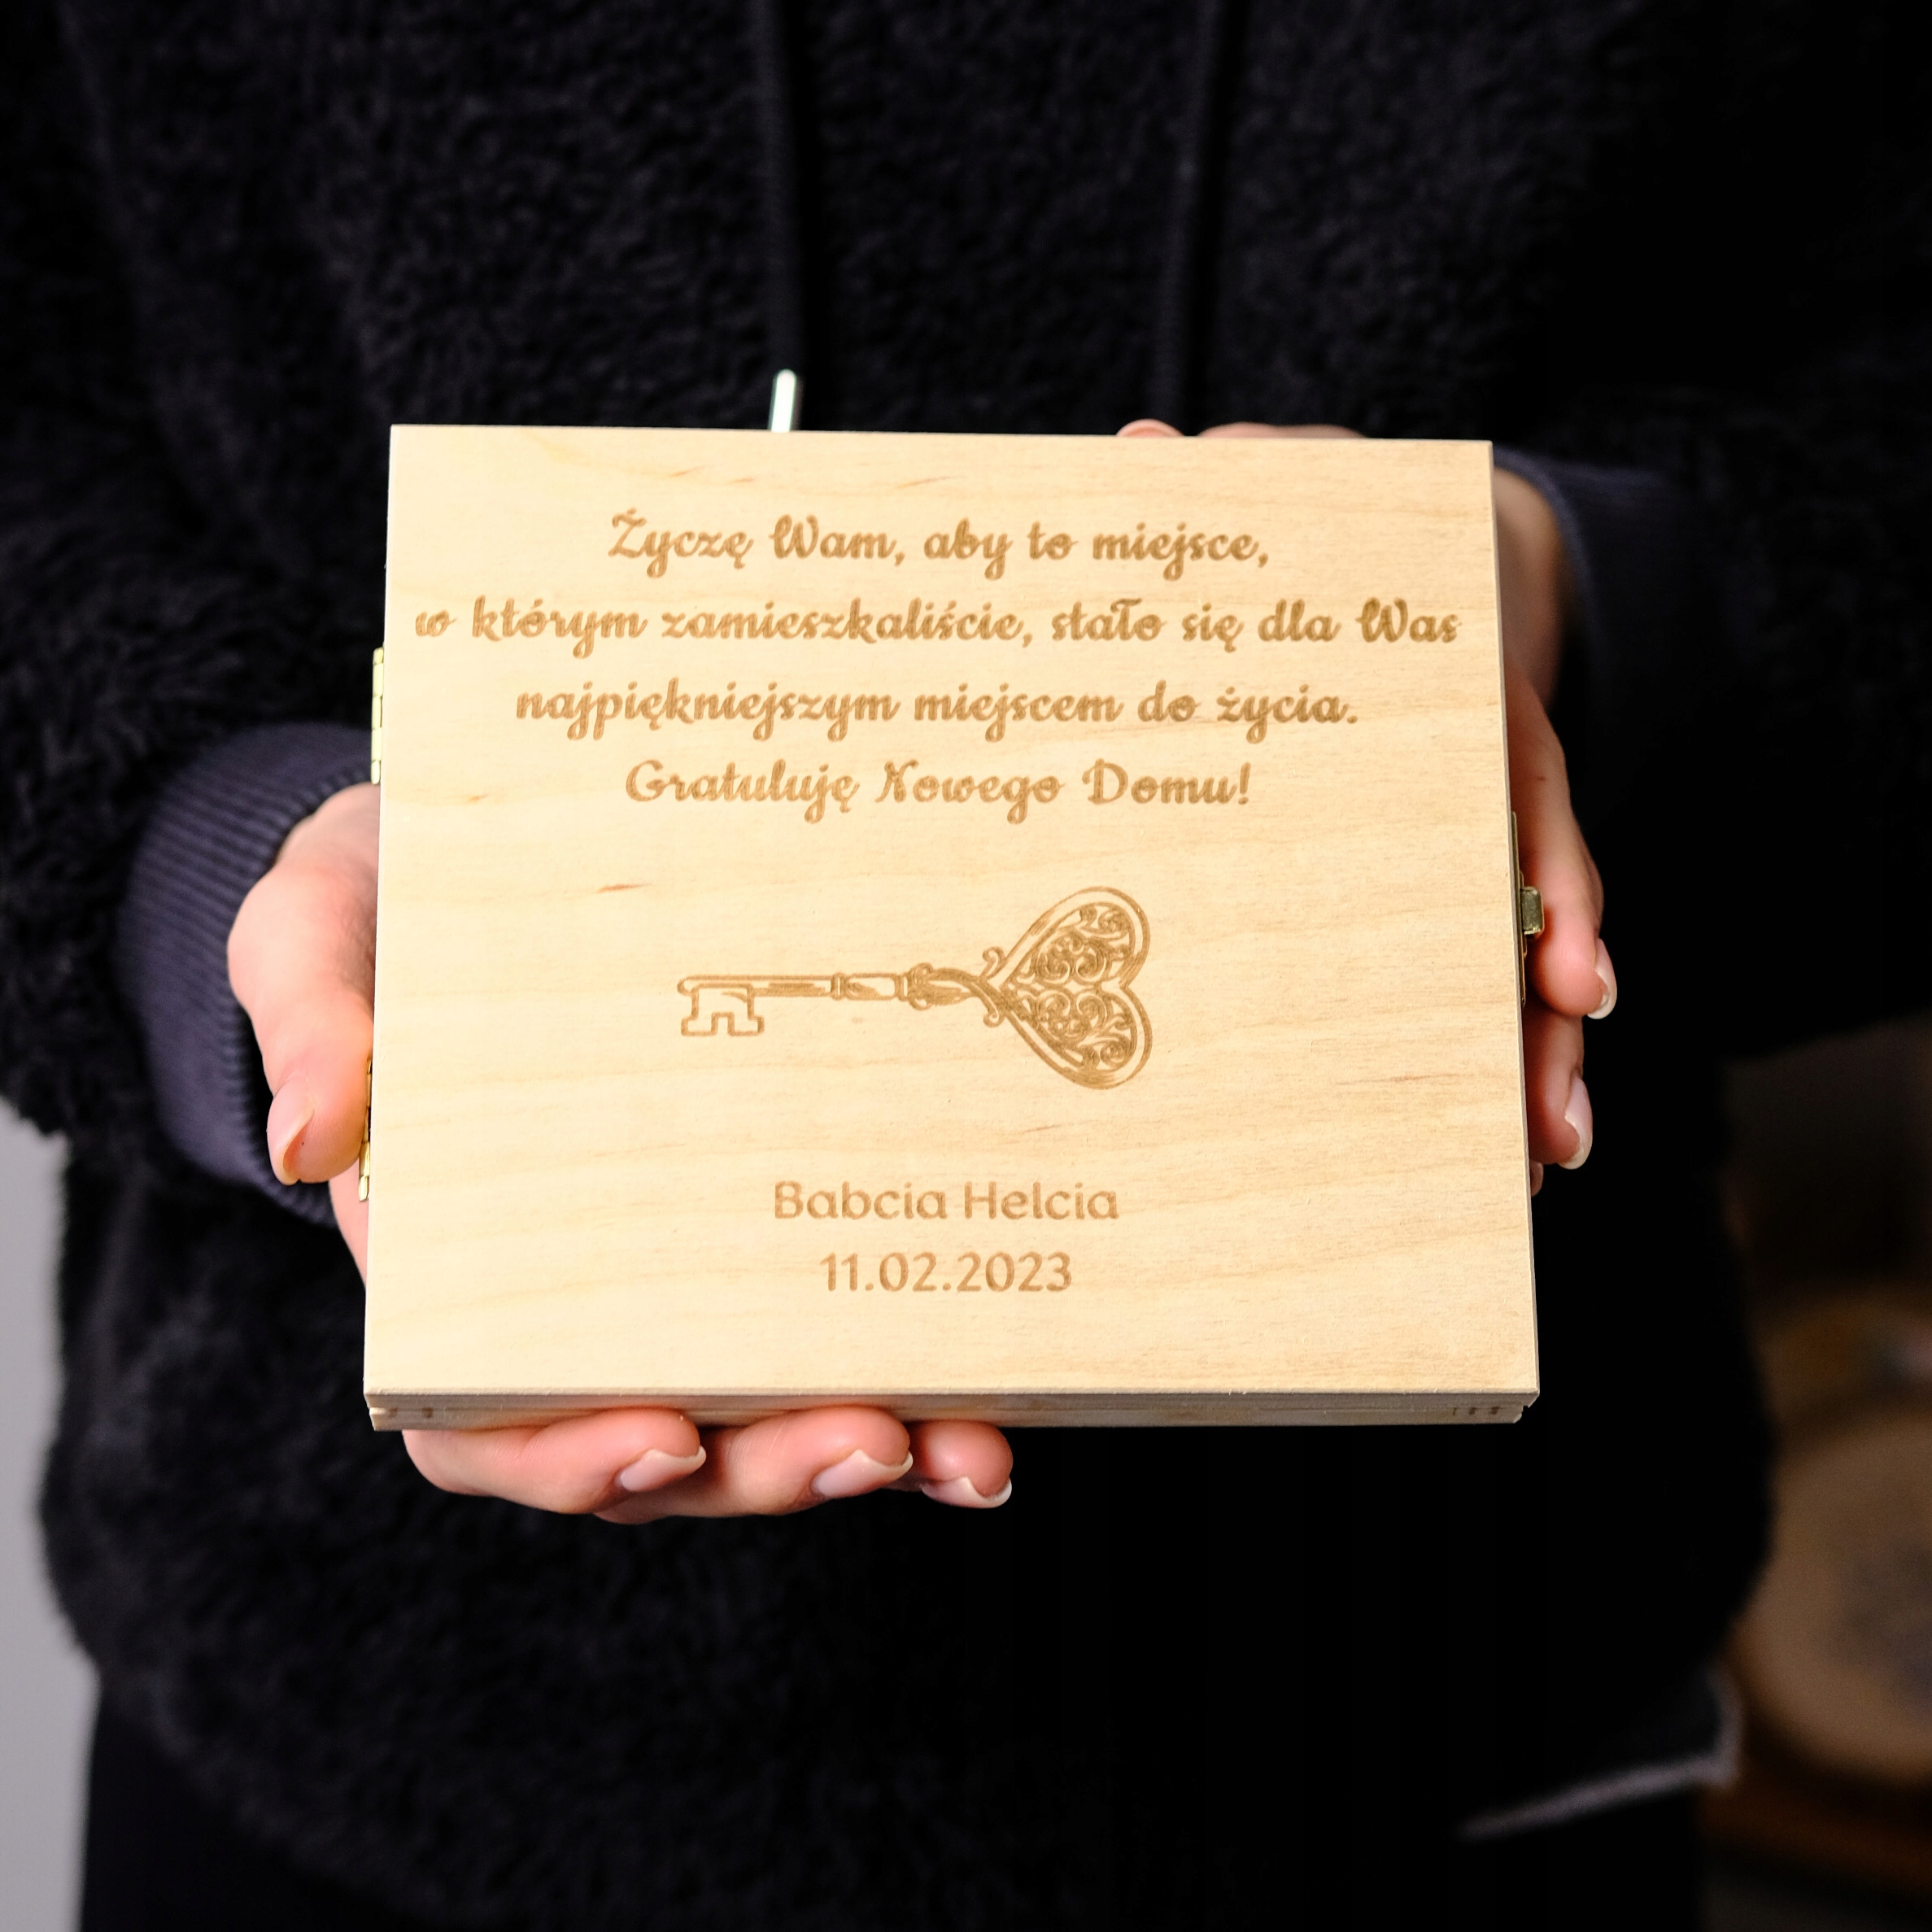 Życzę Wam, aby to miejsce,
w którym zamieszkaliście, stało się dla Was
najpiękniejszym miejscem do życia.
Gratuluję Nowego Domu!
Babcia Helcia
11.02.2023